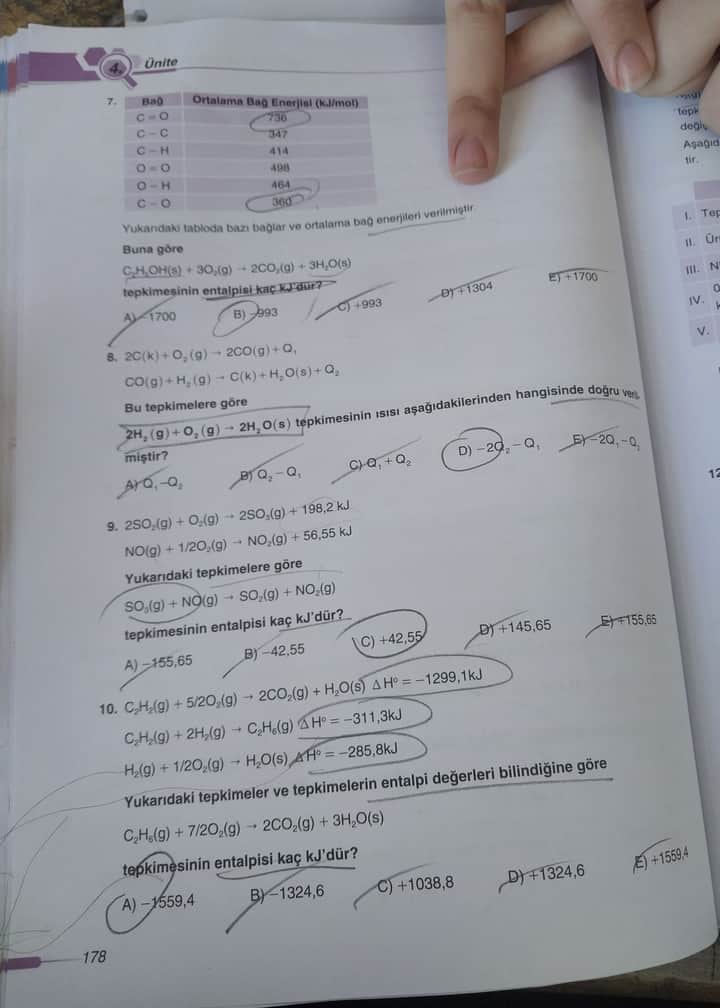 4. Ünite
7. Bağ Ortalama Bağ Enerjisi (kJ/mol)
C = O 736
C – C 347
C – H 414
O = O 498
O – H 464
C – O 360
Yukarıdaki tabloda bazı bağlar ve ortalama bağ enerjileri verilmiştir.
Buna göre
C₂H₅OH(s) + 3O₂(g) → 2CO₂(g) + 3H₂O(s)
tepkimesinin entalpisi kaç kJ'dür?
A) –1700 B) –993 C) +993 D) +1304 E) +1700
8. 2C(k) + O₂(g) → 2CO(g) + Q₁
CO(g) + H₂(g) → C(k) + H₂O(s) + Q₂
Bu tepkimelere göre
2H₂(g) + O₂(g) → 2H₂O(s) tepkimesinin ısısı aşağıdakilerinden hangisinde doğru veril
miştir?
A) Q₁–Q₂ B) Q₂ – Q₁ C) Q₁ + Q₂ D) –2Q₂ – Q₁ E) –2Q₁–Q₂
9. 2SO₂(g) + O₂(g) → 2SO₃(g) + 198,2 kJ
NO(g) + 1/2O₂(g) → NO₂(g) + 56,55 kJ
Yukarıdaki tepkimelere göre
SO₃(g) + NO(g) → SO₂(g) + NO₂(g)
tepkimesinin entalpisi kaç kJ'dür?
A) –155,65 B) –42,55 C) +42,55 D) +145,65 E) +155,65
10. C₂H₂(g) + 5/2O₂(g) → 2CO₂(g) + H₂O(s) ΔH° = –1299,1kJ
C₂H₂(g) + 2H₂(g) → C₂H₆(g) ΔH° = –311,3kJ
H₂(g) + 1/2O₂(g) → H₂O(s) ΔH° = –285,8kJ
Yukarıdaki tepkimeler ve tepkimelerin entalpi değerleri bilindiğine göre
C₂H₆(g) + 7/2O₂(g) → 2CO₂(g) + 3H₂O(s)
tepkimesinin entalpisi kaç kJ'dür?
A) –1559,4 B) –1324,6 C) +1038,8 D) +1324,6 E) +1559,4
178
tepk
değiş
Aşağıd
tir.
I. Tep
II. Ür
III. N
IV.
V.
12